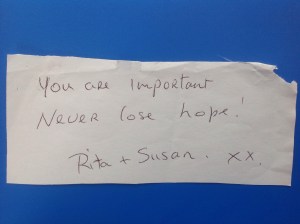 You are important
Never lose hope!
Rita + Susan. xx.